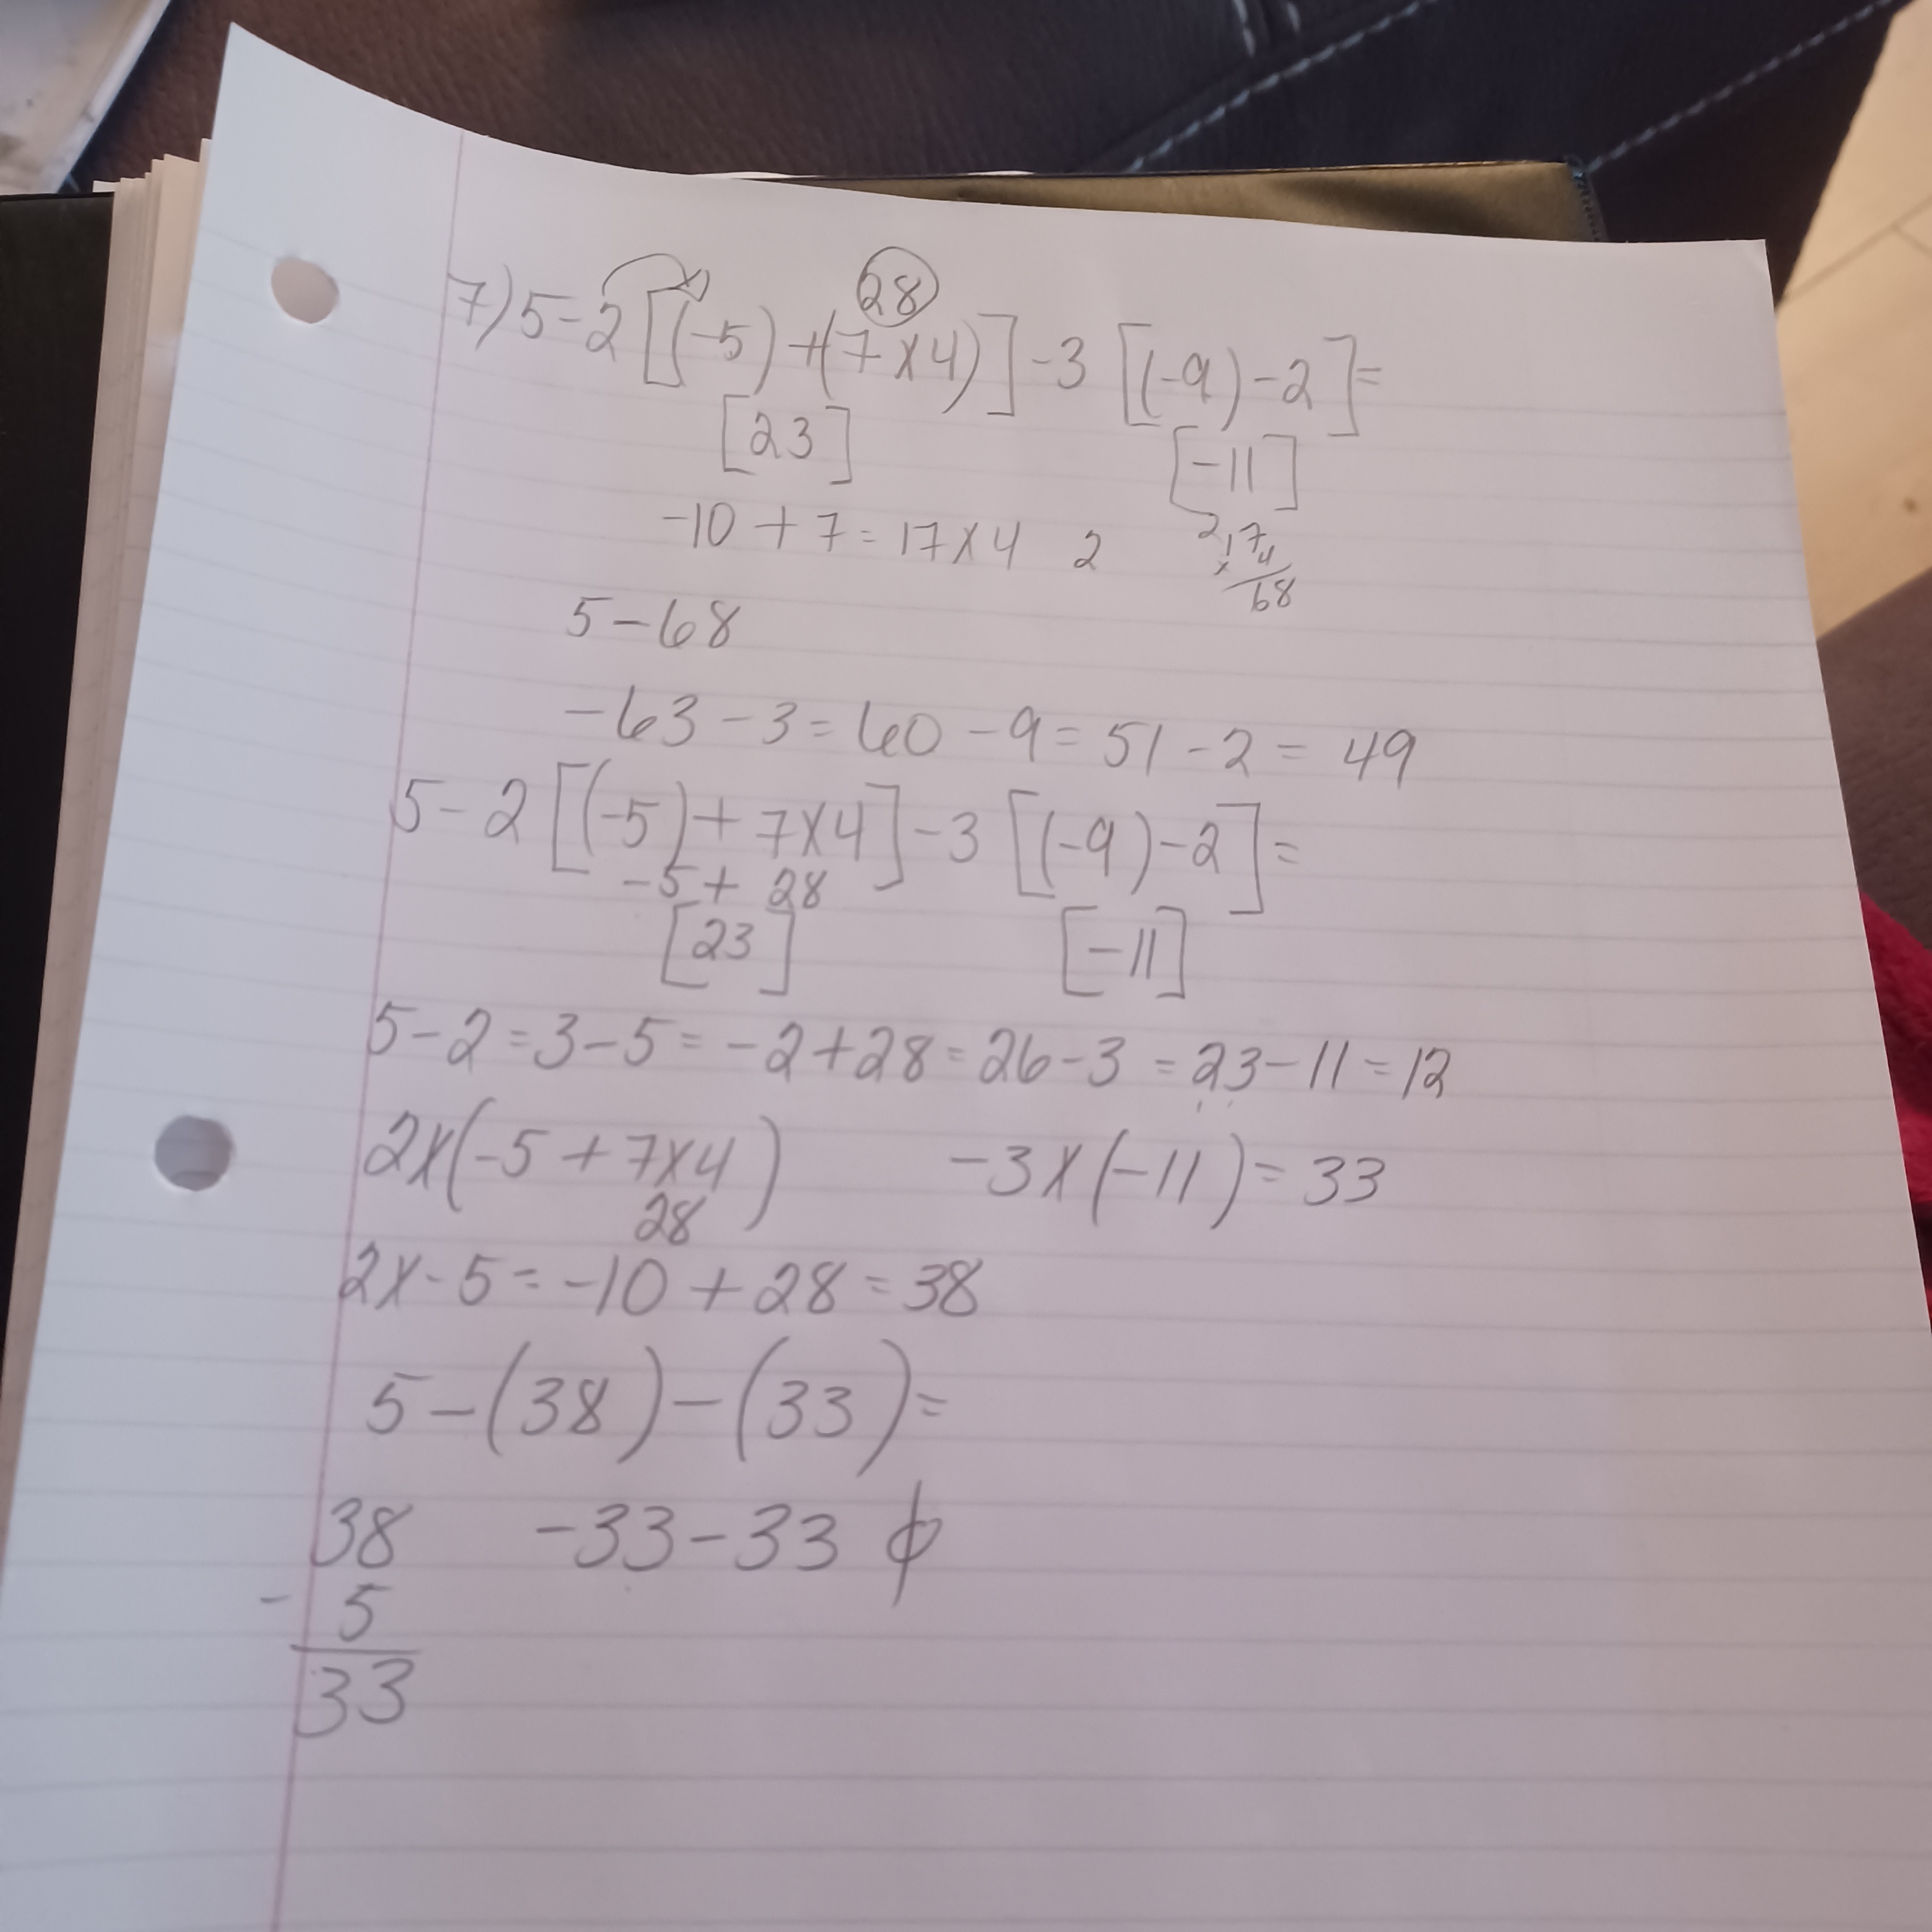 28
7) 5-2[(-5)+(7x4)]-3[(-9)-2]=
[23] [-11]
-10+7=17x4 2
2
17
x 4
68
5-68
-63-3=60-9=51-2=49
5-2[(-5)+7x4]-3[(-9)-2]=
-5+28
[23] [-11]
5-2=3-5=-2+28=26-3=23-11=12
2x(-5+7x4) -3x(-11)=33
28
2x-5=-10+28=38
5-(38)-(33)=
38 -33-33
- 5
33